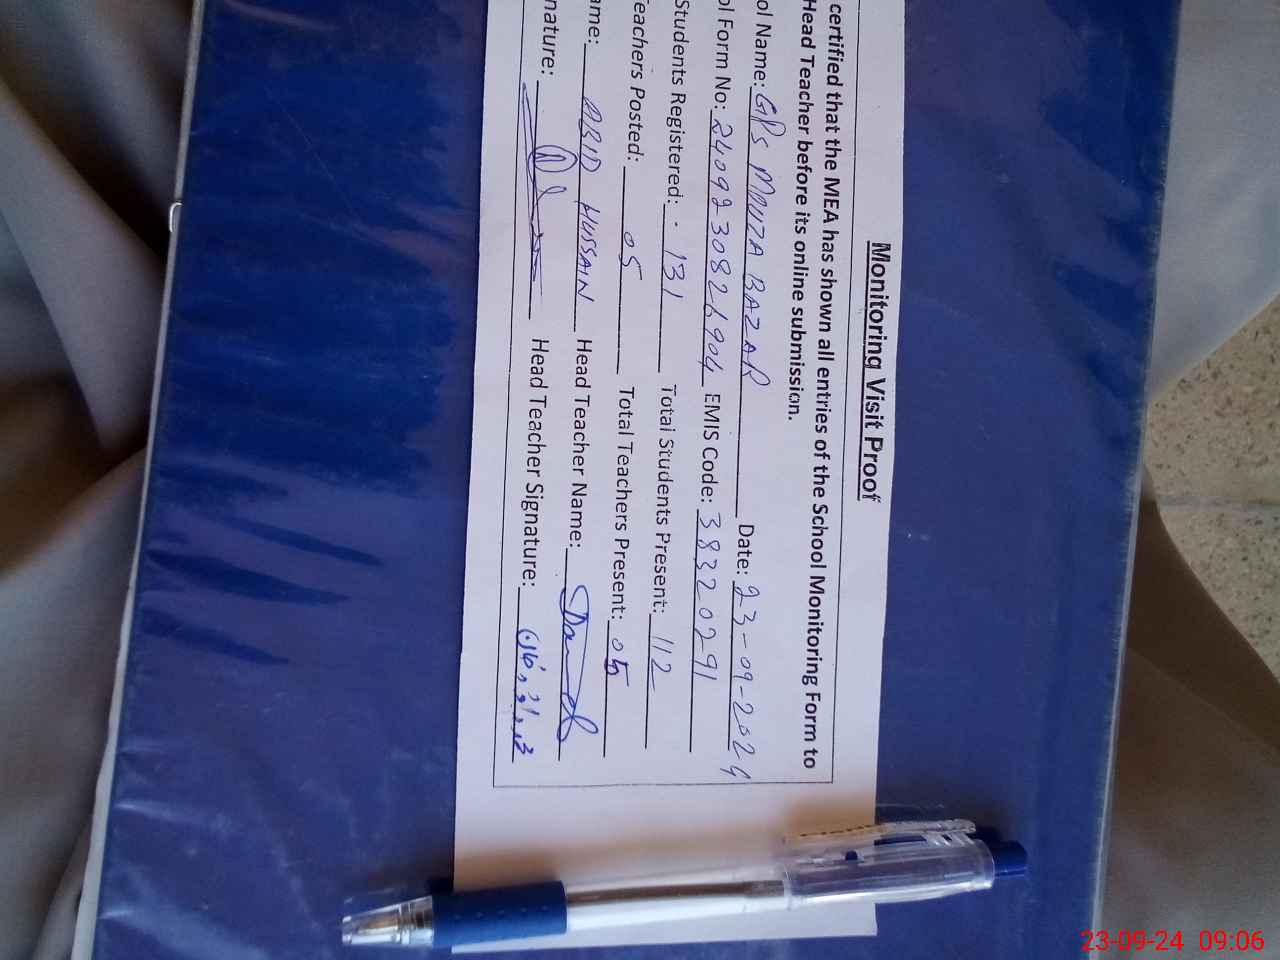 Monitoring Visit Proof
certified that the MEA has shown all entries of the School Monitoring Form to
Head Teacher before its online submission.
ol Name: GPS MOUZA BAZAR Date: 23-09-2024
ol Form No: 2409230826904 EMIS Code: 38320291
Students Registered: 131 Total Students Present: 112
Teachers Posted: 05 Total Teachers Present: 05
ame: ABID HUSSAIN Head Teacher Name:
nature: Head Teacher Signature:
23-09-24 09:06